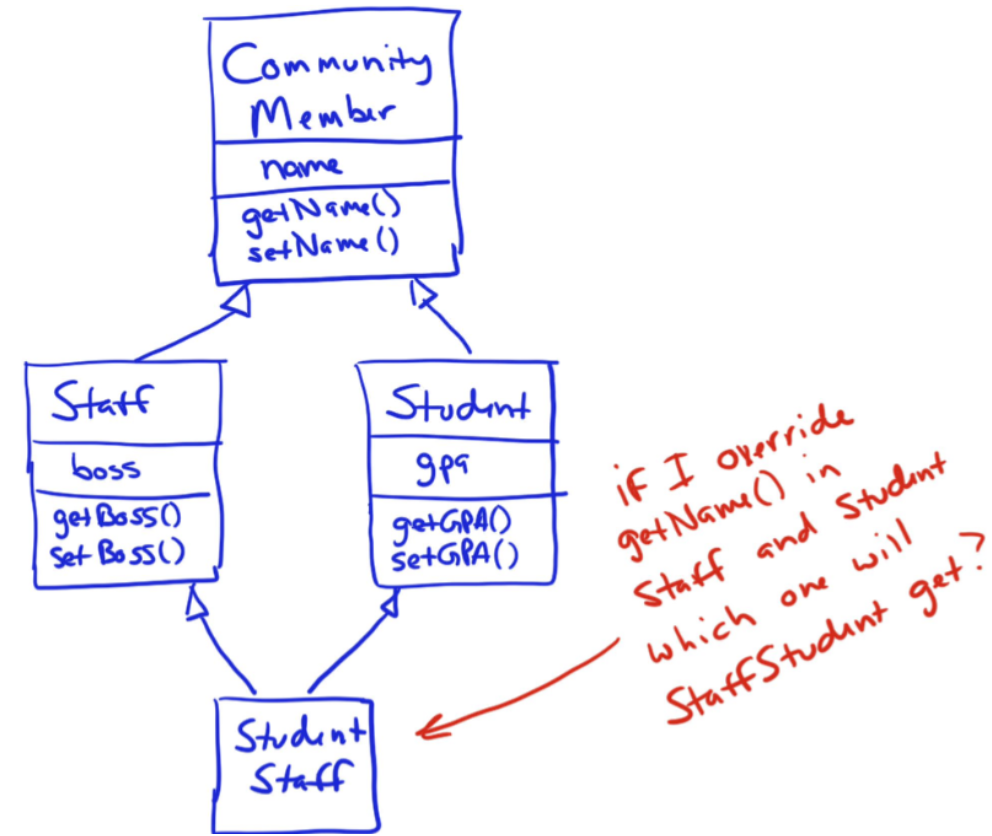 Community
Member
name
getName()
setName()
Staff
boss
getBoss()
setBoss()
Student
gpa
getGPA()
setGPA()
if I override
getName() in
Staff and Student
which one will
StaffStudent get?
Student
Staff